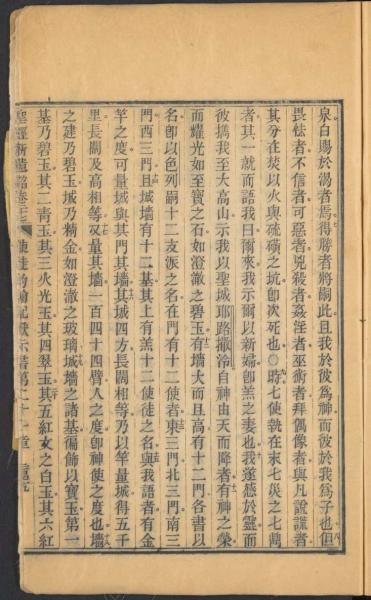 泉白賜於渴者焉得勝者將嗣此且我於彼爲神而彼於我爲子也但
畏怯者不信者可惡者兇殺者姦淫者巫術者拜偶像者與凡說謊者
其分在焚以火與硫磺之坑卽次死也○時七使執在末七災之七
者其一就而語我曰爾來我示爾以新婦卽羔之妻也我遂感於靈而
彼攜我至大高山示我以聖城耶路撒冷自神由天而降者有神之榮
而耀光如至寶之石如澄澈之碧玉有墻大而且高有十二門各書以
名卽以色列嗣十二支派之名在門有十二使者東三門北三門南三
門西三門且城墻有十二基其上有羔十二使徒之名與我語者有金
竿之度可量城與其門其墻其城四方長闊相等乃以竿量城得五千
里長闊及高相等又量其墻一百四十四臂人之度卽神使之度也墻
之建乃碧玉城乃精金如澄澈之玻璃城墻之諸基徧飾以寶玉第一
基乃碧玉其二靑玉其三火光玉其四翠玉其五紅文之白玉其六紅
聖經新遺詔卷三 使徒約翰記默示書第二十一章